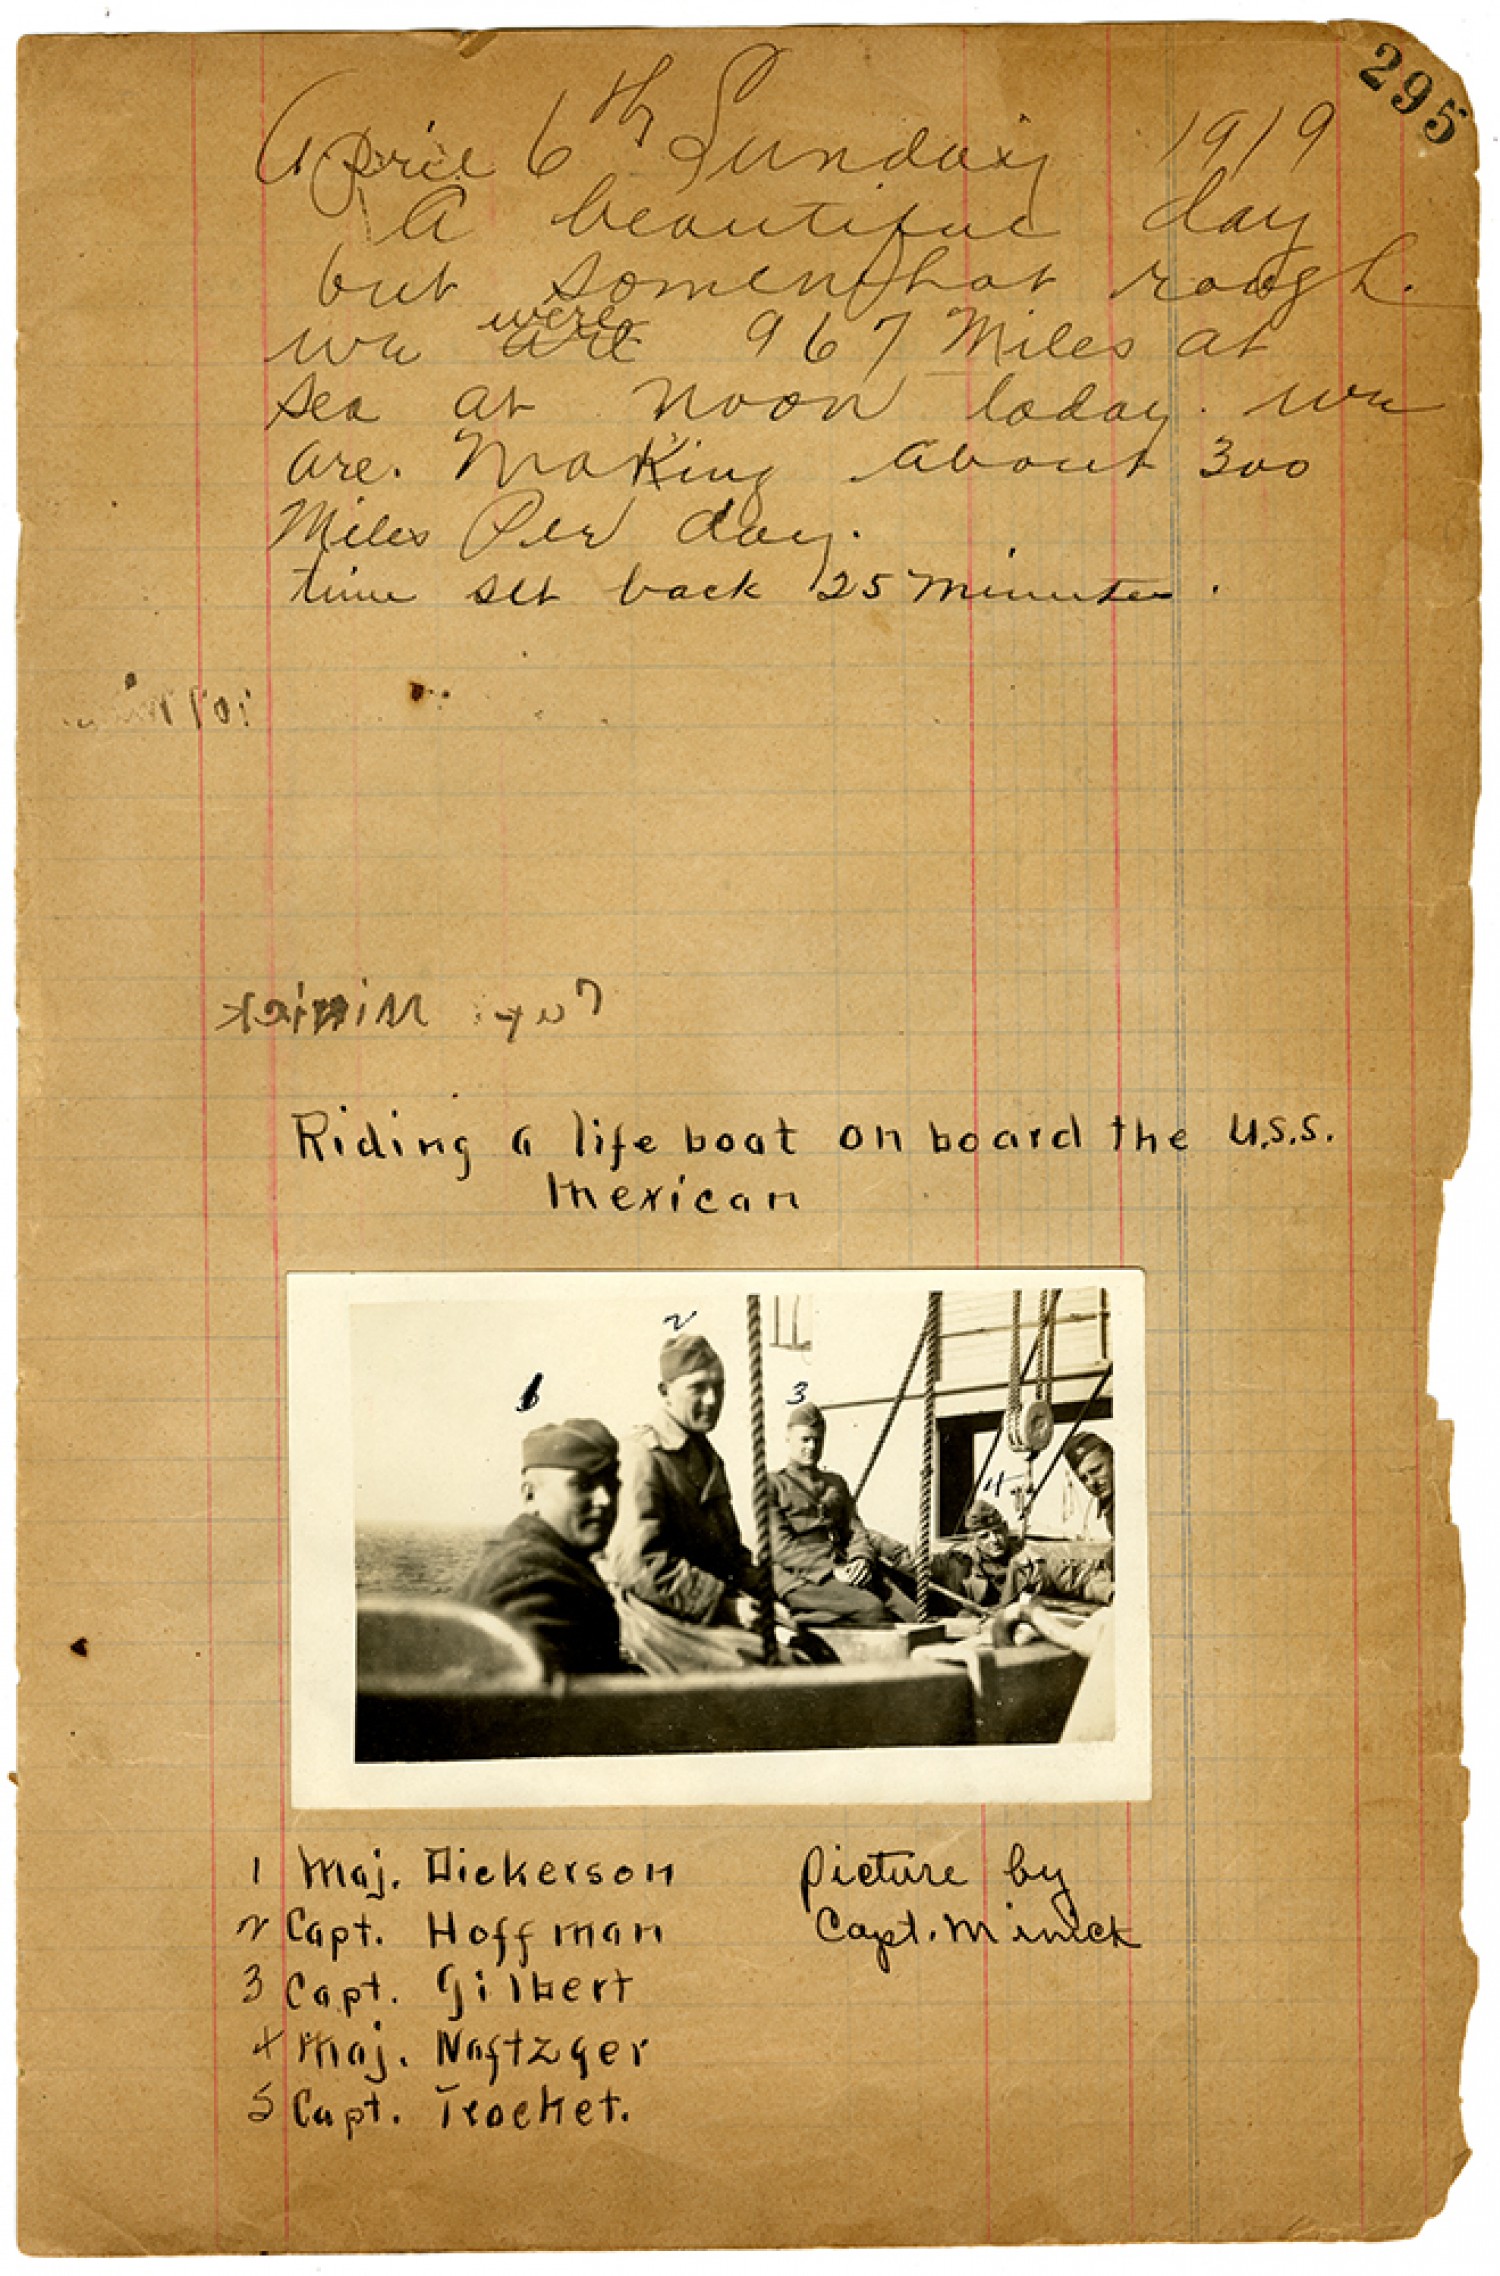 295
April 6th Sunday 1919
A beautiful day
but somewhat rough.
we are were 967 Miles at
sea at noon today. we
are. Making about 300
Miles Per day.
time set back 25 Minutes.
Riding a life boat on board the U.S.S.
Mexican
1
2
3
4
1 Maj. Dickerson
2 Capt. Hoffman
3 Capt. Gilbert
4 Maj. Naftzger
5 Capt. Trocket.
Picture by
Capt. Minick